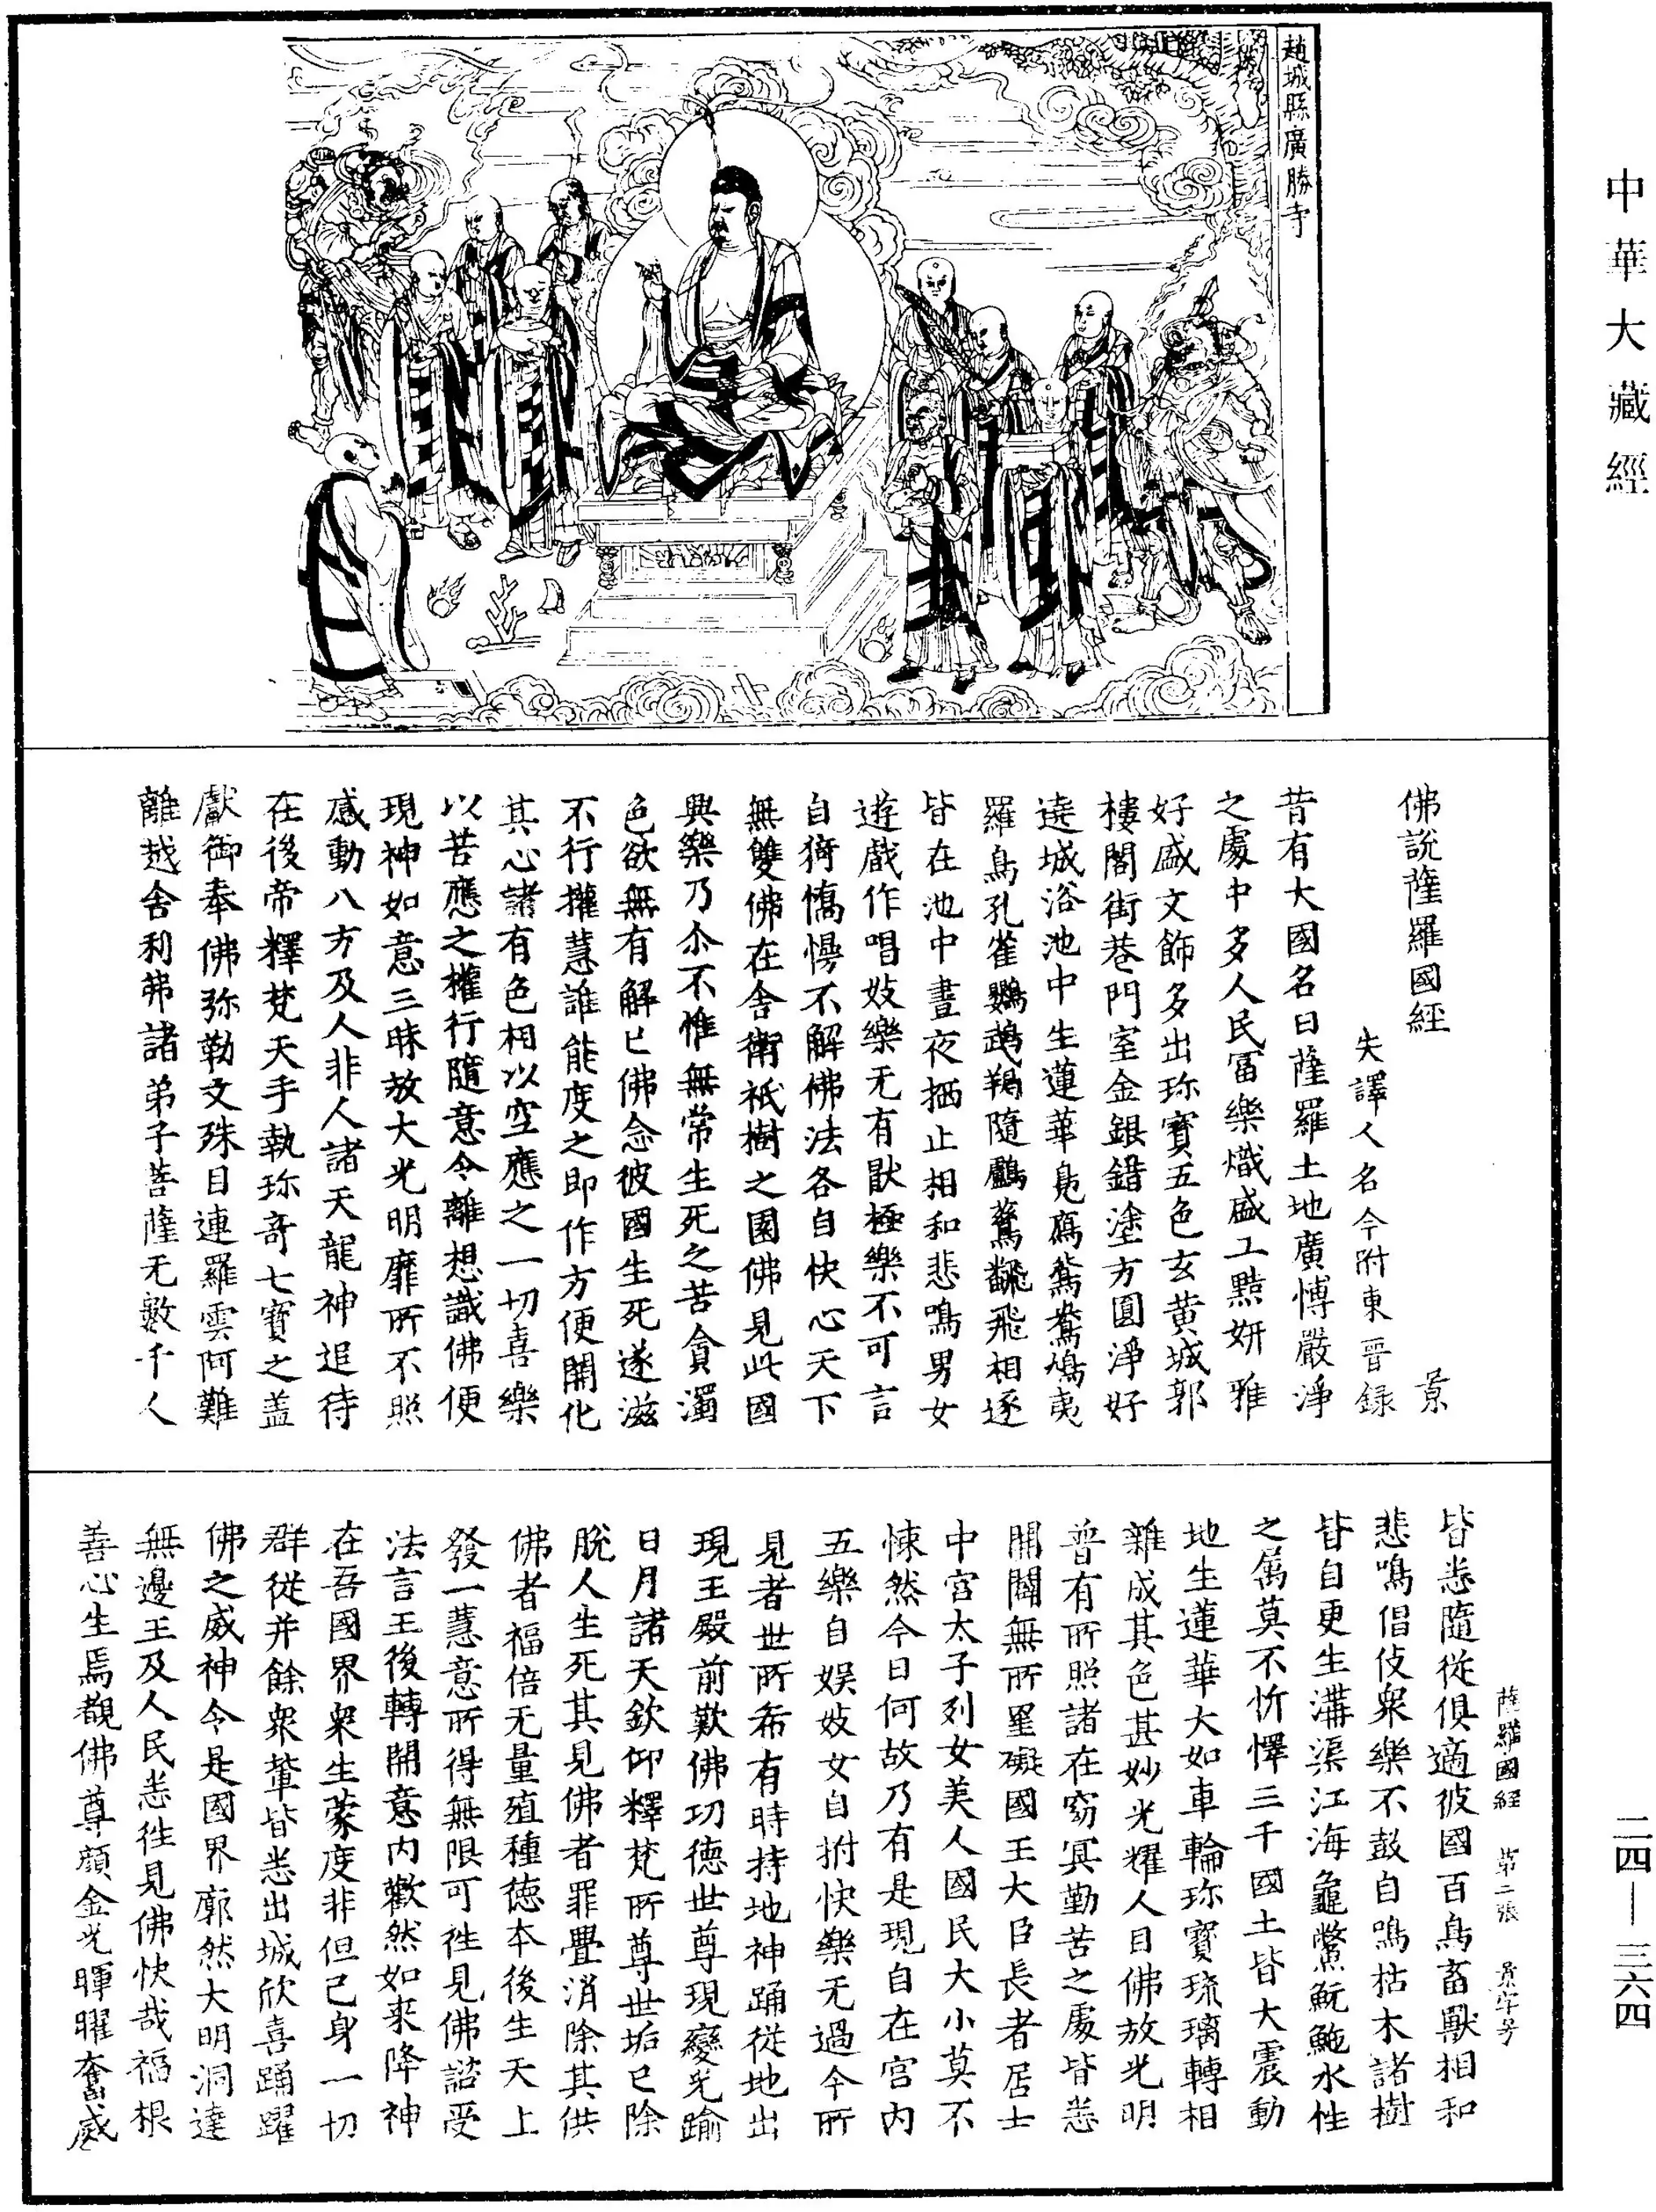 中華大藏經
趙城縣廣勝寺
佛說薩羅國經
景
失譯人名今附東晉錄
昔有大國名曰薩羅土地廣博嚴淨
之處中多人民冨樂熾盛工黠妍雅
好盛文飾多出珎寶五色玄黄城郭
樓閣街巷門室金銀錯塗方圓淨好
遶城浴池中生蓮華鳧鴈鴛鴦鳩夷
羅鳥孔雀鸚鵡鞨隨鸕鶿飜飛相逐
皆在池中晝夜栖止相和悲鳴男女
遊戲作唱妓樂无有猒極樂不可言
自猗憍慢不解佛法各自快心天下
無雙佛在舍衛祇樹之園佛見此國
興樂乃尒不惟無常生死之苦貪濁
色欲無有解已佛念彼國生死遂滋
不行權慧誰能度之即作方便開化
其心諸有色相以空應之一切喜樂
以苦應之權行隨意令離想識佛便
現神如意三昧放大光明靡所不照
感動八方及人非人諸天龍神追待
在後帝釋梵天手執珎奇七寶之盖
獻御奉佛弥勒文殊目連羅雲阿難
離越舍利弗諸弟子菩薩无數千人
薩羅國經 第二張 景字号
皆悉隨從俱適彼國百鳥畜獸相和
悲鳴倡伎衆樂不鼓自鳴枯木諸樹
皆自更生溝渠江海龜鱉黿鼉水性
之属莫不忻懌三千國土皆大震動
地生蓮華大如車輪珎寶琉璃轉相
雜成其色甚妙光耀人目佛放光明
普有所照諸在窈冥勤苦之處皆悉
開闢無所罣礙國王大臣長者居士
中宮太子列女美人國民大小莫不
悚然今日何故乃有是現自在宮内
五樂自娛妓女自拊快樂无過今所
見者世所希有時持地神踊從地出
現王殿前歎佛功德世尊現變光踰
日月諸天欽仰釋梵所尊世垢已除
脫人生死其見佛者罪疊消除其供
佛者福倍无量殖種德本後生天上
發一慧意所得無限可往見佛諮受
法言王後轉開意内歡然如来降神
在吾國界衆生蒙度非但己身一切
群從并餘衆軰皆悉出城欣喜踊躍
佛之威神今是國界廓然大明洞達
無邊王及人民悉往見佛快哉福根
善心生焉覩佛尊顔金光暉曜奮威
二四—三六四